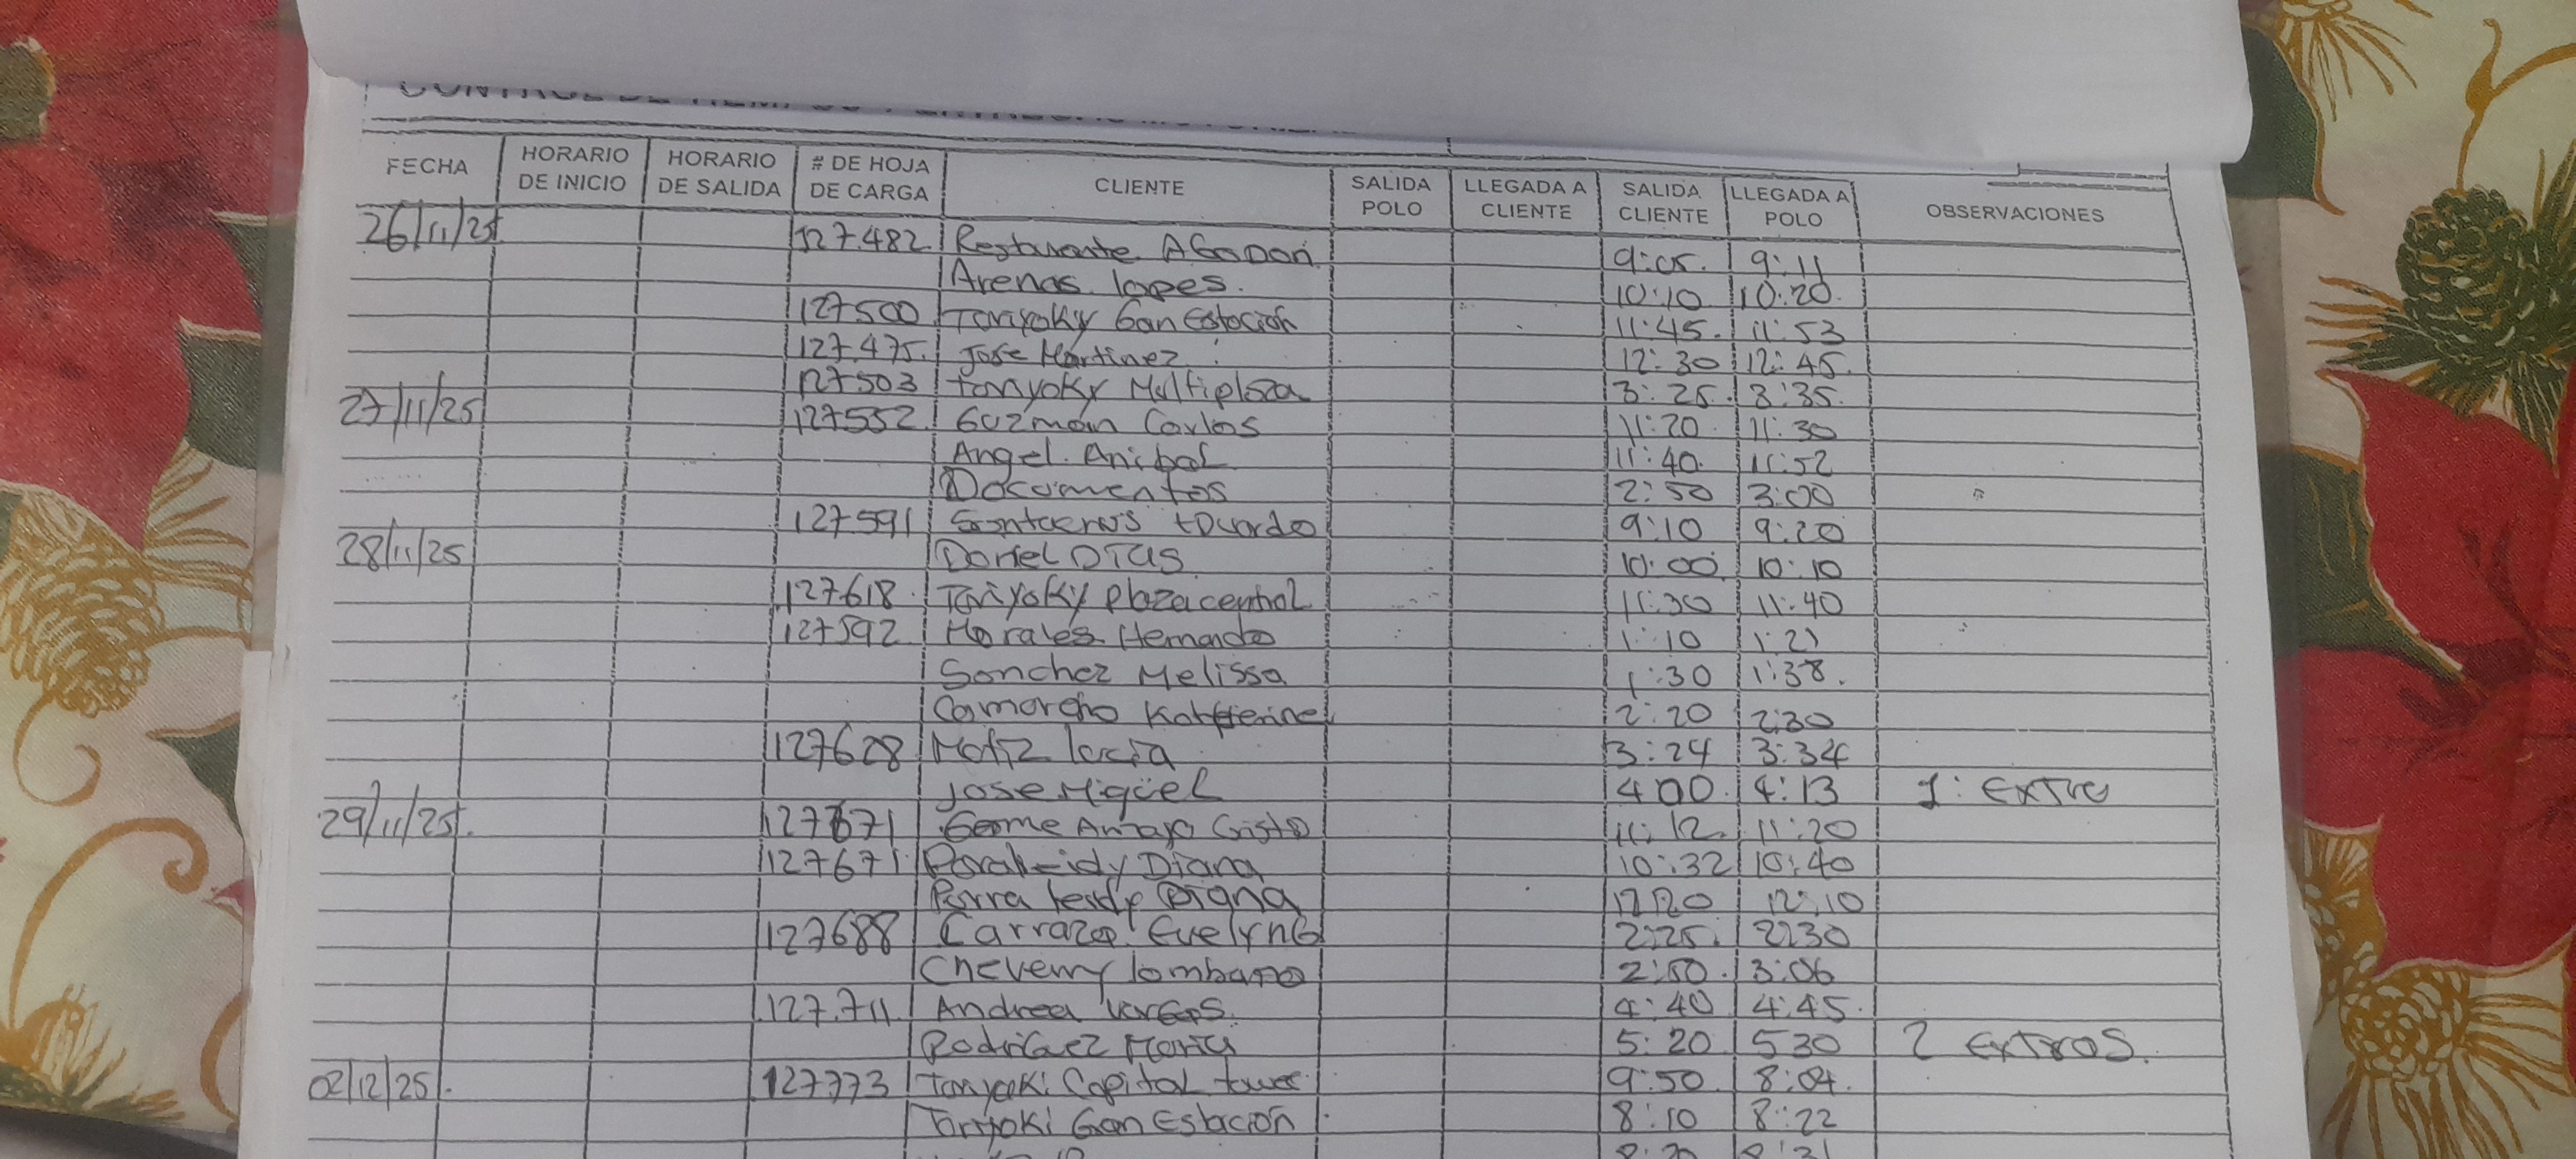 FECHA HORARIO DE INICIO HORARIO DE SALIDA # DE HOJA DE CARGA CLIENTE SALIDA POLO LLEGADA A CLIENTE SALIDA CLIENTE LLEGADA A POLO OBSERVACIONES
26/11/25 127.482 Restaurante 9:05 9:11
Arenas lopes. 10:10 10:20
127500 Toriyoky Gan Estación 11:45 11:53
127.475 Jose Martinez 12:30 12:45
127503 Toriyoky Multiplaza 3:25 3:35
27/11/25 127552 Guzman Carlos 11:20 11:30
Angel. Anibal 11:40 11:52
Documentos 2:50 3:00
127591 9:10 9:20
28/11/25 Daniel 10:00 10:10
127618 Toriyoky plaza central 11:30 11:40
127592 Morales Hernando 1:10 1:21
Sanchez Melissa 1:30 1:38
Camargo Katherine 2:20 2:30
127628 lucia 3:24 3:34
Jose Miguel 4:00 4:13 1: Extra
29/11/25 127671 11:12 11:20
127671 Diana 10:32 10:40
Parra leidy Diana 12:10
127688 2:25 2:30
lombano 2:50 3:06
127.711 Andrea Vargas 4:40 4:45
Rodriguez Maria 5:20 530 2 Extras
02/12/25 127773 Toriyoki Capital tower 9:50 8:04
Toriyoki Gan Estación 8:10 8:22